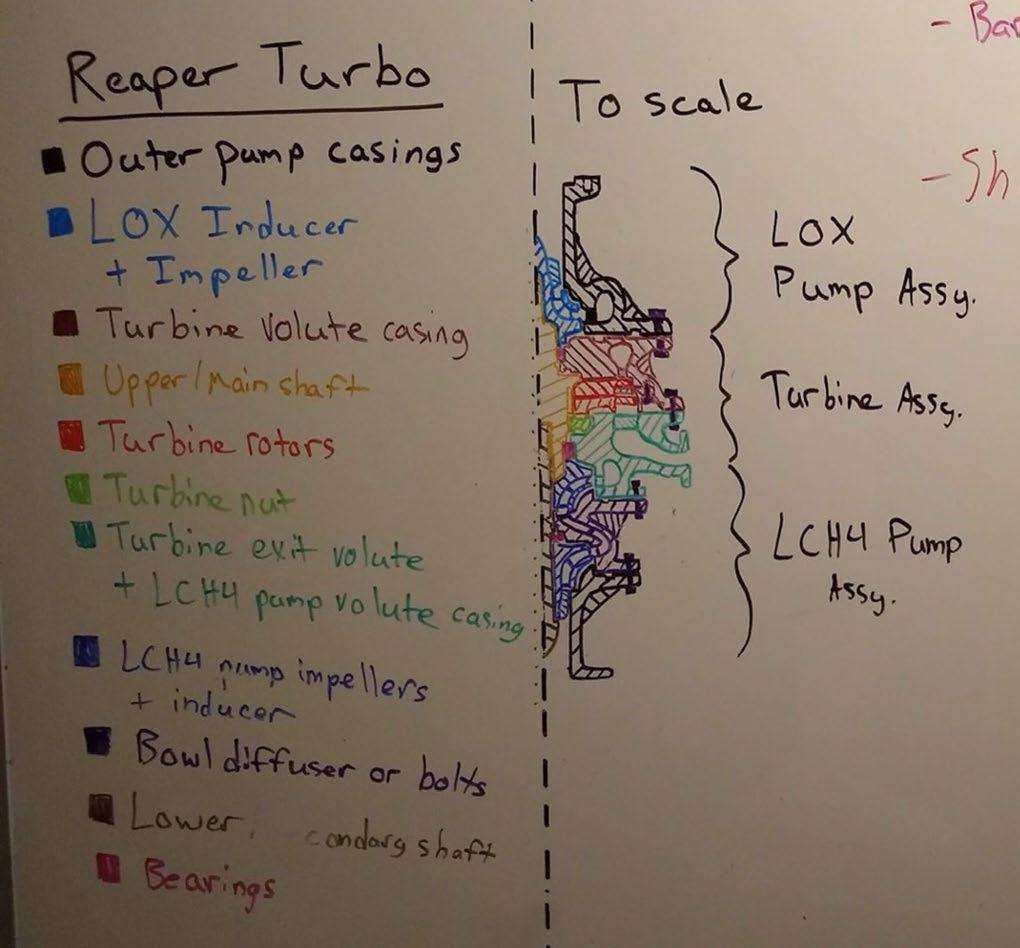 Reaper Turbo
Outer pump casings
LOX Inducer
+ Impeller
Turbine volute casing
Upper/Main shaft
Turbine rotors
Turbine nut
Turbine exit volute
+ LCH4 pump volute casing
LCH4 pump impellers
+ inducer
Bowl diffuser or bolts
Lower, condary shaft
Bearings
To scale
LOX
Pump Assy.
Turbine Assy.
LCH4 Pump
Assy.
- Bar
- Sh